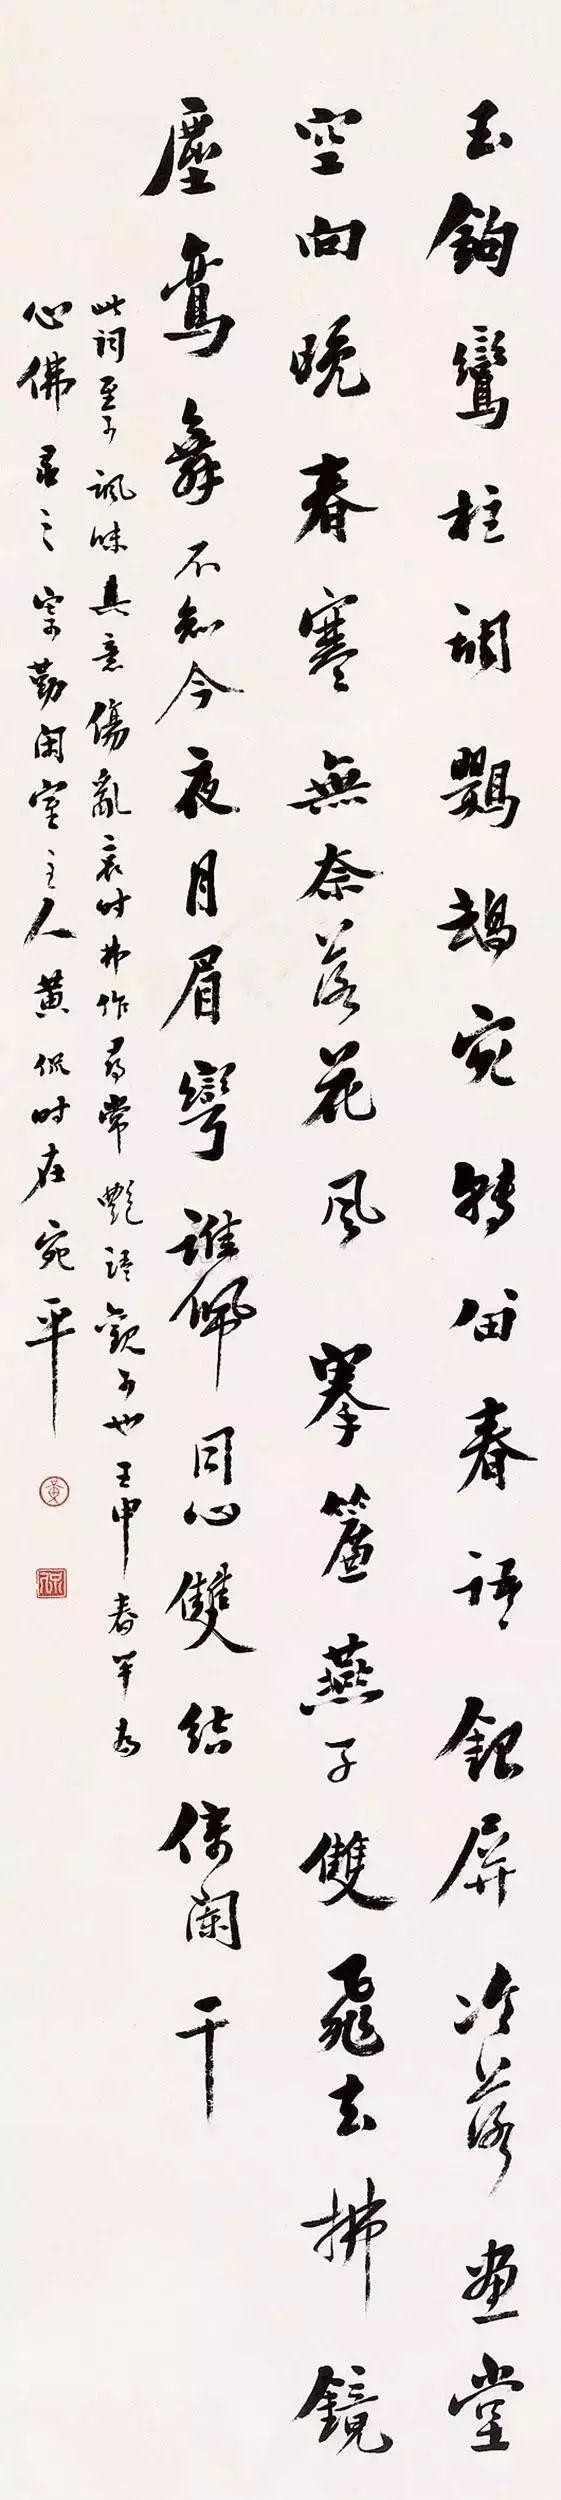 玉鉤鸞柱調鸚鵡宛轉留春語雲屏冷落畫堂
空向晚春寒無奈落花風搴簾燕子雙飛去拂鏡
塵鸞舞不知今夜月眉彎誰佩同心雙結倚闌干
此詞至可諷味其意傷亂哀時非作尋常艷語觀可也壬申春半為
心佛居士寫勤閑室主人黃侃時在宛平
黃
侃